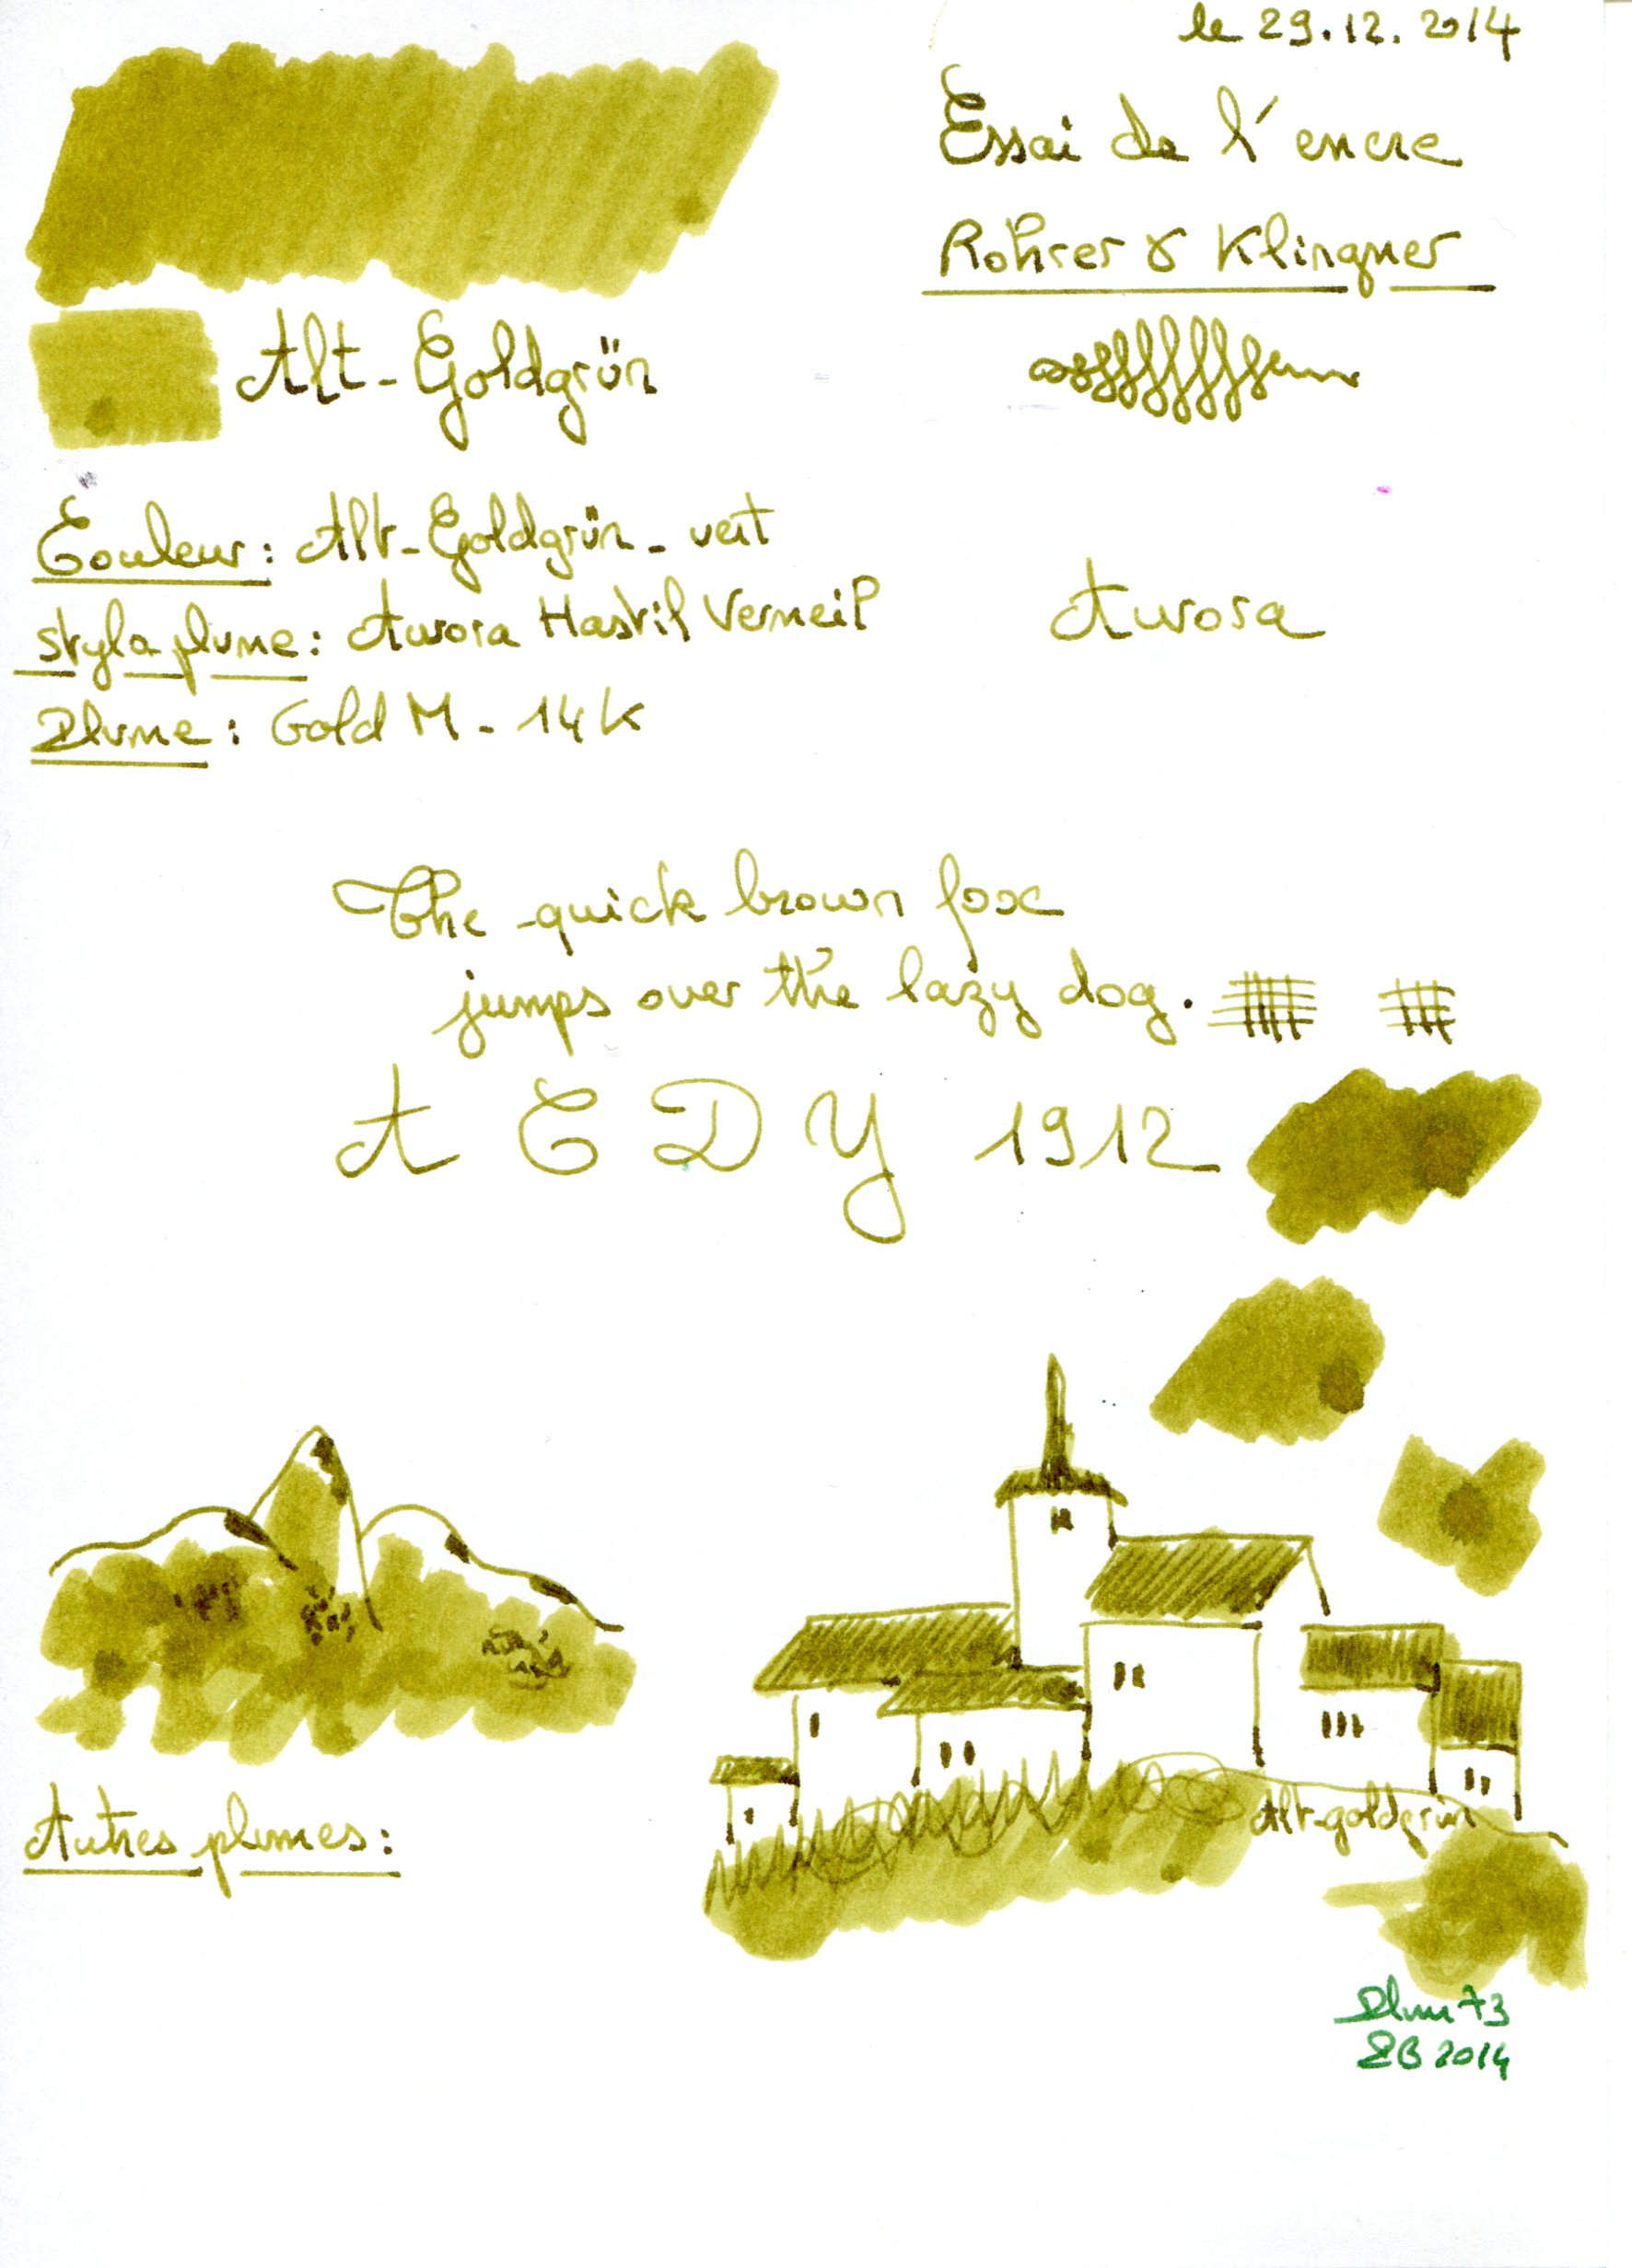 le 29.12.2014
Essai de l'encre
Rohrer & Klingner
Alt-Goldgrün
Couleur: Alt-Goldgrün - vert
stylo plume: Aurora Hastil Vermeil
Aurora
Plume: Gold M - 14K
The quick brown fox
jumps over the lazy dog.
A C D Y 1912
Autres plumes:
Alt-goldgrün
Plum73
EB 2014